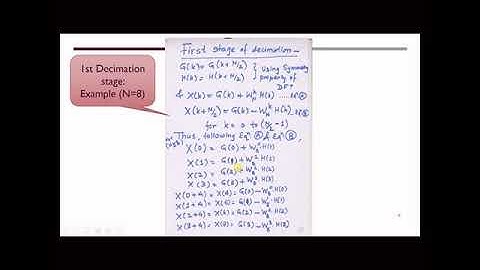 1st Decimation
stage:
Example (N=8)
First stage of decimation -
G(k) = G(k+N/2)
H(k) = H(k+N/2)
} Using Symmetry
property of
DFT
& X(k) = G(k) + W_N^k H(k)
X(k+N/2) = G(k) - W_N^k H(k)
for k = 0 to (N/2 - 1)
Thus, following Eqn (A) & Eqn (B),
X(0) = G(0) + W_8^0 H(0)
X(1) = G(1) + W_8^1 H(1)
X(2) = G(2) + W_8^2 H(2)
X(3) = G(3) + W_8^3 H(3)
X(0+4) = X(4) = G(0) - W_8^0 H(0)
X(1+4) = X(5) = G(1) - W_8^1 H(1)
X(2+4) = X(6) = G(2) - W_8^2 H(2)
X(3+4) = X(7) = G(3) - W_8^3 H(3)